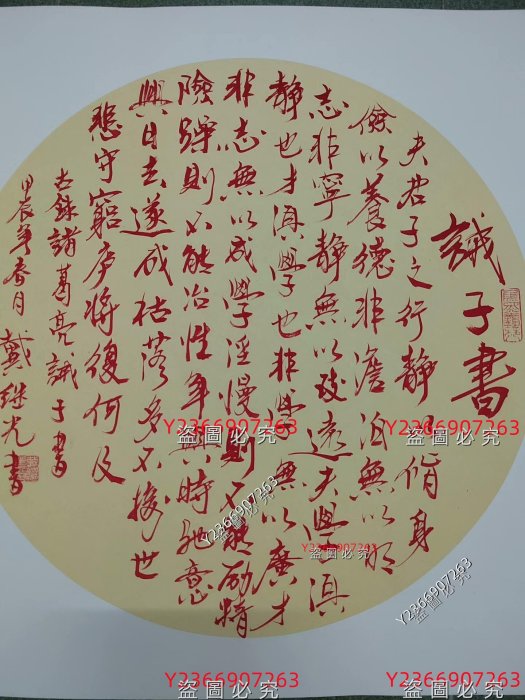 誡子書
夫君子之行静以脩身
儉以養德非澹泊無以明
志非寧静無以致遠夫學須
静也才須學也非學無以廣才
非志無以成學淫慢則不能励精
險躁則不能冶性年與時馳意
與日去遂成枯落多不接世
悲守窮庐将復何及
錄諸葛亮誡子書
甲辰年春月戴继光書
Y2366907263
盜圖必究
Y2366907263
盜圖必究
Y2366907263
盜圖必究
Y2366907263
盜圖必究
Y2366907263
盜圖必究
Y2366907263
盜圖必究
Y2366907263
盜圖必究